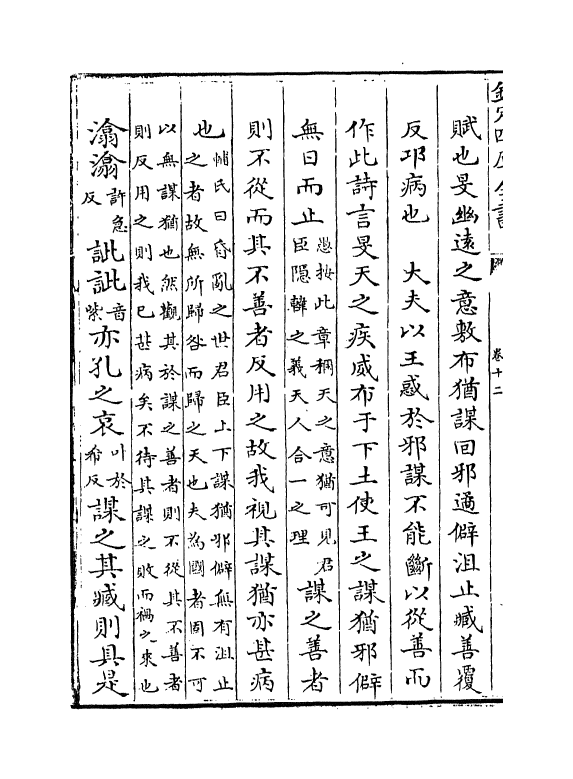 欽定四庫全書
卷十二
賦也旻幽遠之意敷布猶謀回邪遹僻沮止臧善覆
反邛病也　大夫以王惑於邪謀不能斷以從善而
作此詩言旻天之疾威布于下土使王之謀猶邪僻
無日而止愚按此章稱天之意猶可見君臣隱諱之義天人合一之理謀之善者
則不從而其不善者反用之故我視其謀猶亦甚病
也輔氏曰昏亂之世君臣上下謀猶邪僻無有沮止之者故無所歸咎而歸之天也夫為國者固不可
以無謀猶也然觀其於謀之善者則不從其不善者則反用之則我已甚病矣不待其謀之敗而禍之來也
潝潝許急反訿訿音紫亦孔之哀叶於希反謀之其臧則具是